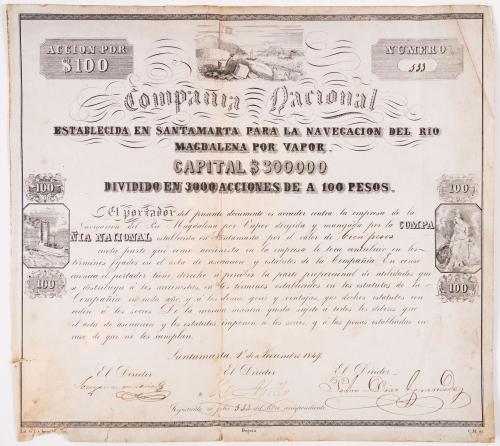 ACCION POR
$100
NUMERO
533
Compañia Nacional
ESTABLECIDA EN SANTAMARTA PARA LA NAVEGACION DEL RIO
MAGDALENA POR VAPOR.
CAPITAL $300000
DIVIDIDO EN 3000 ACCIONES DE A 100 PESOS.
100
100
El portador del presente documento es acreedor contra la empresa de la
Navegacion del Rio Magdalena por Vapor dirijida y manejada por la COMPA
ÑIA NACIONAL establecida en Santamarta por el valor de Cien pesos
cuota parte que como accionista en la empresa le toca contribuir en los
términos fijados en el acta de asociacion y estatutos de la Compañia. En conse
cuencia el portador tiene derecho á percibir la parte proporcional de utilidades que
se distribuya á los accionistas en los términos establecidos en los estatutos de la
Compañia en cada año, y á los demas goces y ventajas que dichos estatutos con
ceden á los socios. De la misma manera queda sujeto á todos los deberes que
el acta de asociacion y los estatutos imponen á los socios, y á las penas establecidas en
caso de que no los cumplan.
100
100
Santamarta 1º de Diciembre 1849.
El Director
El Director
El Director
Registrado á folio 533 del libro correspondiente
Bogotá